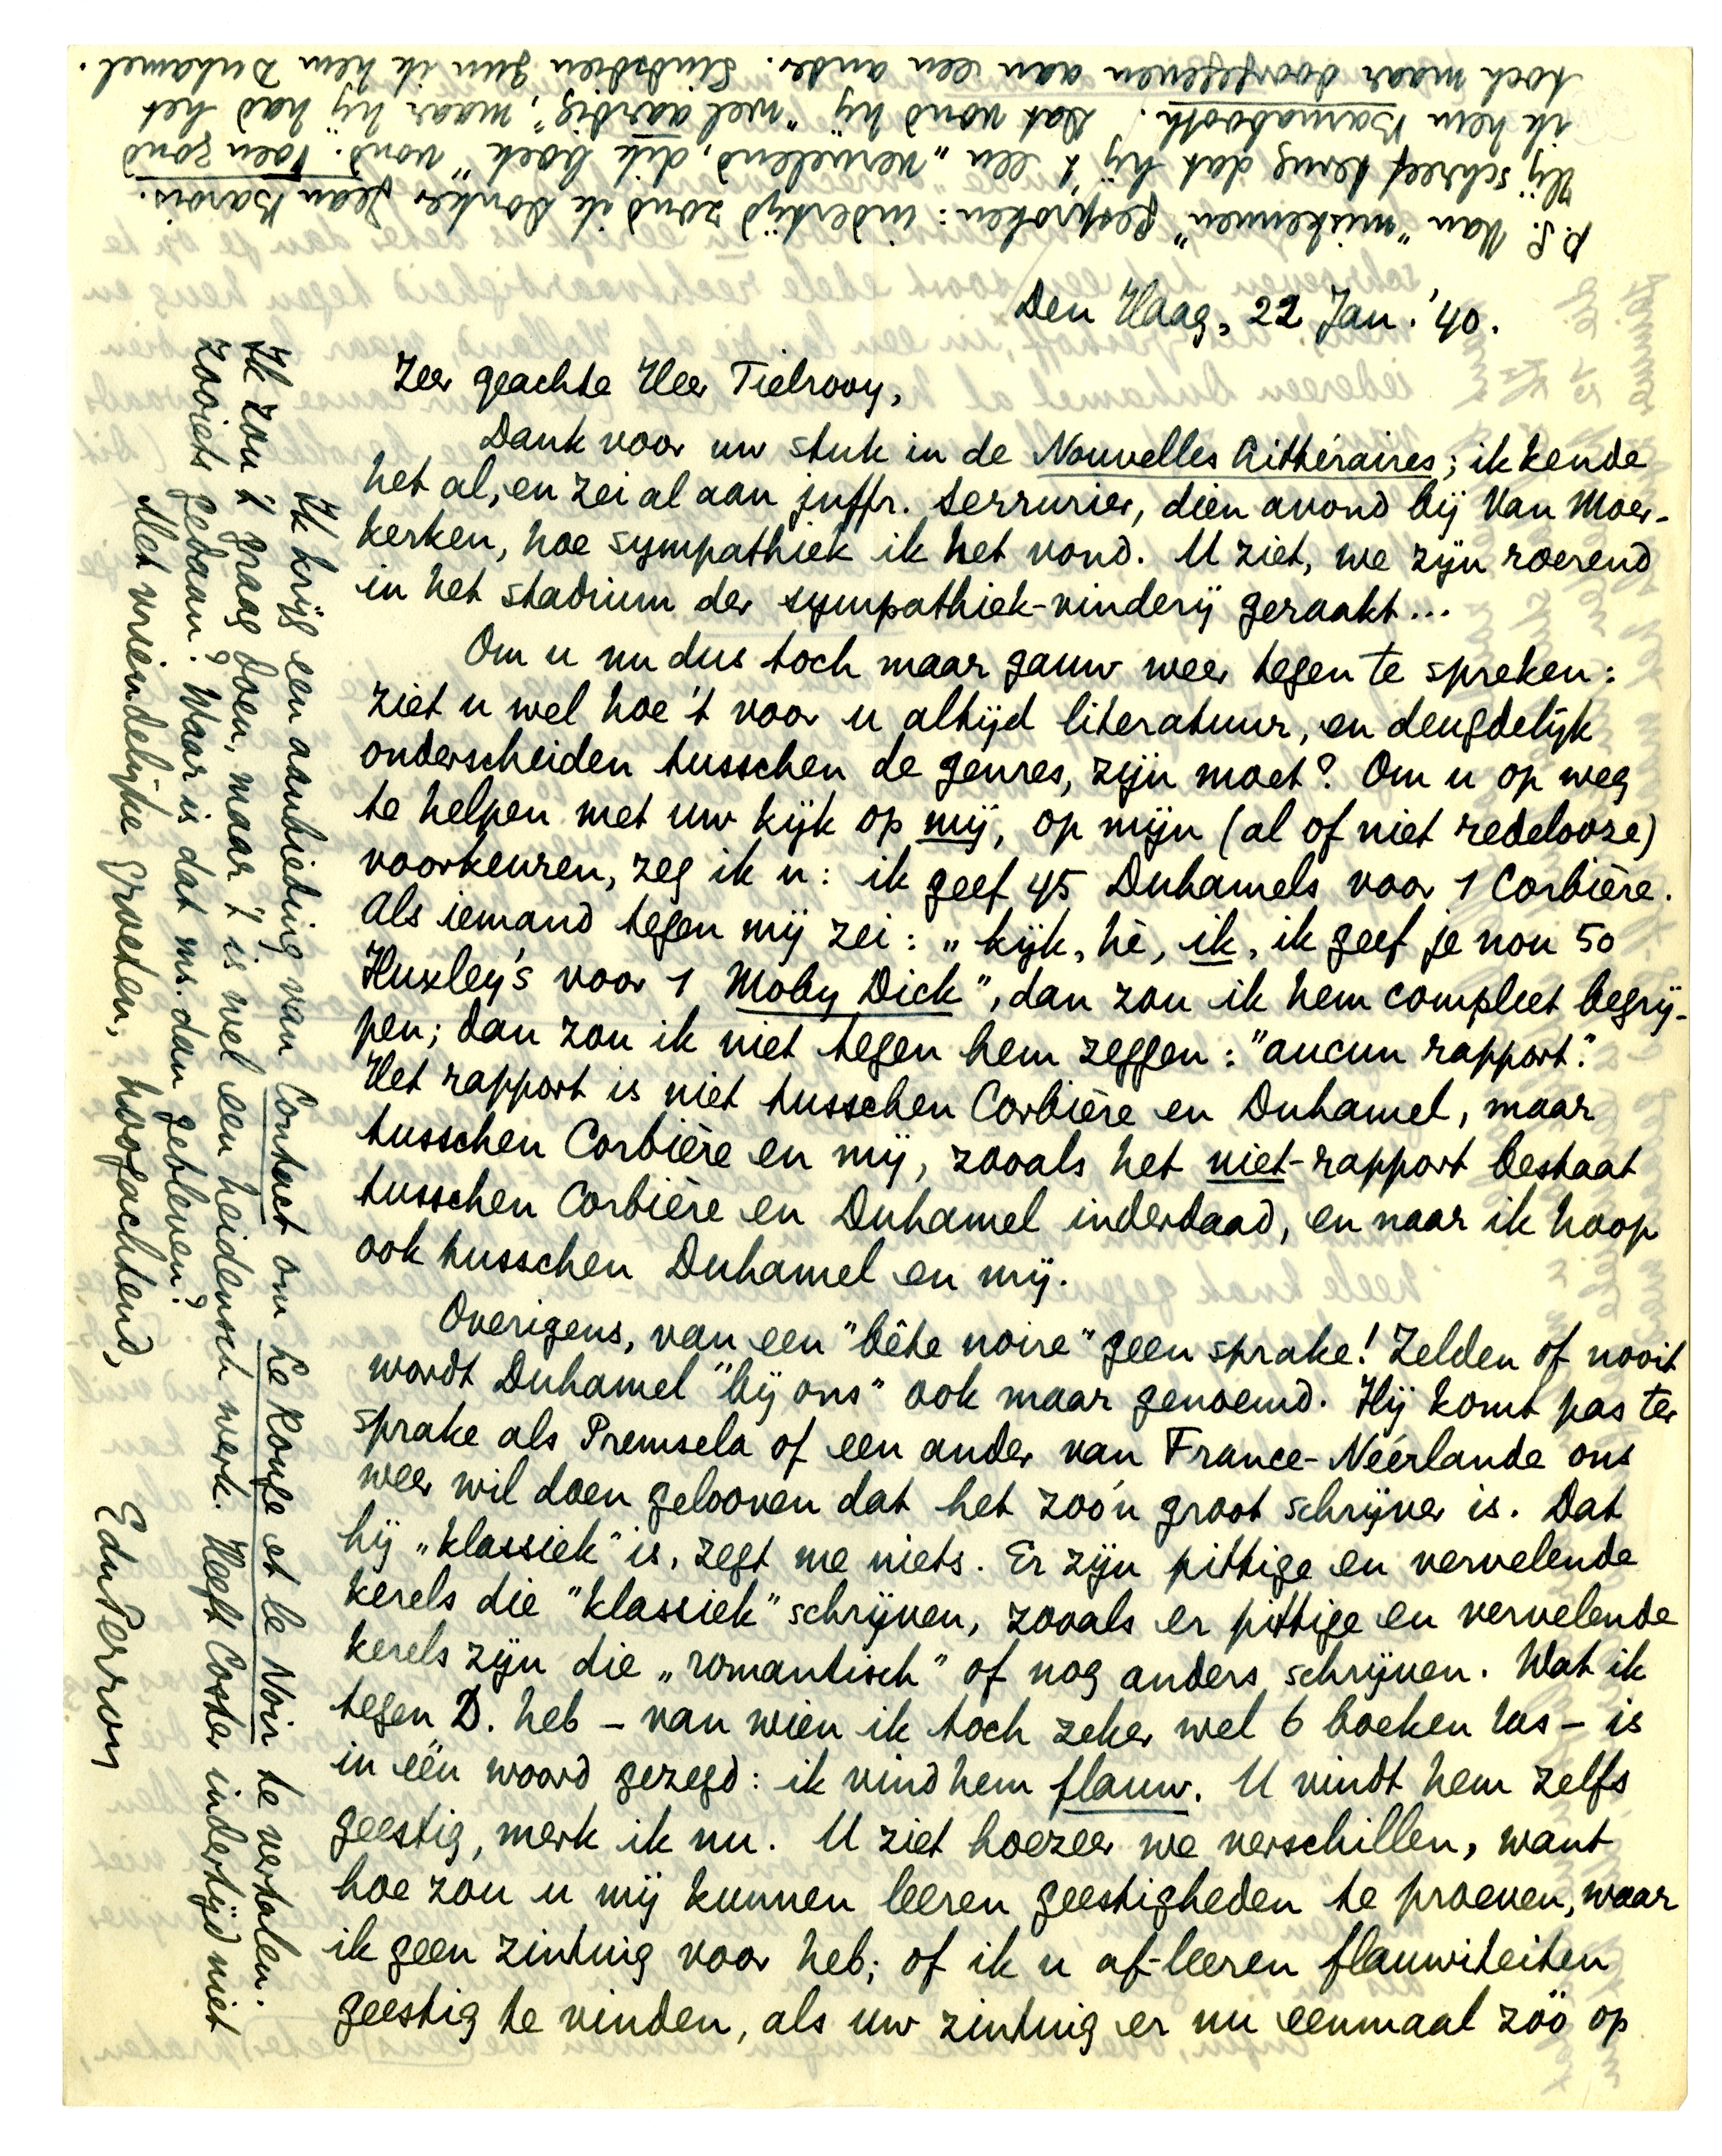 Den Haag, 22 Jan. '40.
Zeer geachte Heer Tielrooy,
Dank voor uw stuk in de Nouvelles Littéraires; ik kende
het al, en zei al aan juffr. Serrurier, dien avond bij Van Moer-
kerken, hoe sympathiek ik het vond. U ziet, we zijn roerend
in het stadium der sympathiek-vinderij geraakt...
Om u nu dus toch maar gauw weer tegen te spreken:
ziet u wel hoe 't voor u altijd literatuur, en deugdelijk
onderscheiden tusschen de genres, zijn moet? Om u op weg
te helpen met uw kijk op mij, op mijn (al of niet redelooze)
voorkeuren, zeg ik u: ik geef 45 Duhamels voor 1 Corbière.
Als iemand tegen mij zei: „kijk, hè, ik, ik geef je nou 50
Huxley's voor 1 Moby Dick", dan zou ik hem compleet begrij-
pen; dan zou ik niet tegen hem zeggen: "aucun rapport".
Het rapport is niet tusschen Corbière en Duhamel, maar
tusschen Corbière en mij, zooals het niet-rapport bestaat
tusschen Corbière en Duhamel inderdaad, en naar ik hoop
ook tusschen Duhamel en mij.
Overigens, van een "bête noire" geen sprake! Zelden of nooit
wordt Duhamel "bij ons" ook maar genoemd. Hij komt pas ter
sprake als Premsela of een ander van France-Néérlande ons
weer wil doen gelooven dat het zoo'n groot schrijver is. Dat
hij „klassiek" is, zegt me niets. Er zijn pittige en vervelende
kerels die "klassiek" schrijven, zooals er pittige en vervelende
kerels zijn die „romantisch" of nog anders schrijven. Wat ik
tegen D. heb – van wien ik toch zeker wel 6 boeken las – is
in één woord gezegd: ik vind hem flauw. U vindt hem zelfs
geestig, merk ik nu. U ziet hoezeer we verschillen, want
hoe zou u mij kunnen leeren geestigheden te proeven, waar
ik geen zintuig voor heb; of ik u af-leeren flauwiteiten
geestig te vinden, als uw zintuig er nu eenmaal zóó op
Ik krijg een aanbieding van Contact om Le Rouge et le Noir te vertalen.
Ik zou 't graag doen, maar 't is wel een heidensch werk. Heeft Coster indertijd niet
zooiets gedaan? Waar is dat ms. dan gebleven?
Met vriendelijke groeten, hoogachtend,
EduPerron
P.S. Van "miskennen" gesproken: indertijd zond ik Donker Jean Barois.
Hij schreef terug dat hij 't een „vervelend, dik boek" vond. Toen zond
ik hem Barnabooth. Dat vond hij "wel aardig", maar hij had het
toch maar doorgegeven aan een ander. Sindsdien gun ik hem Duhamel.